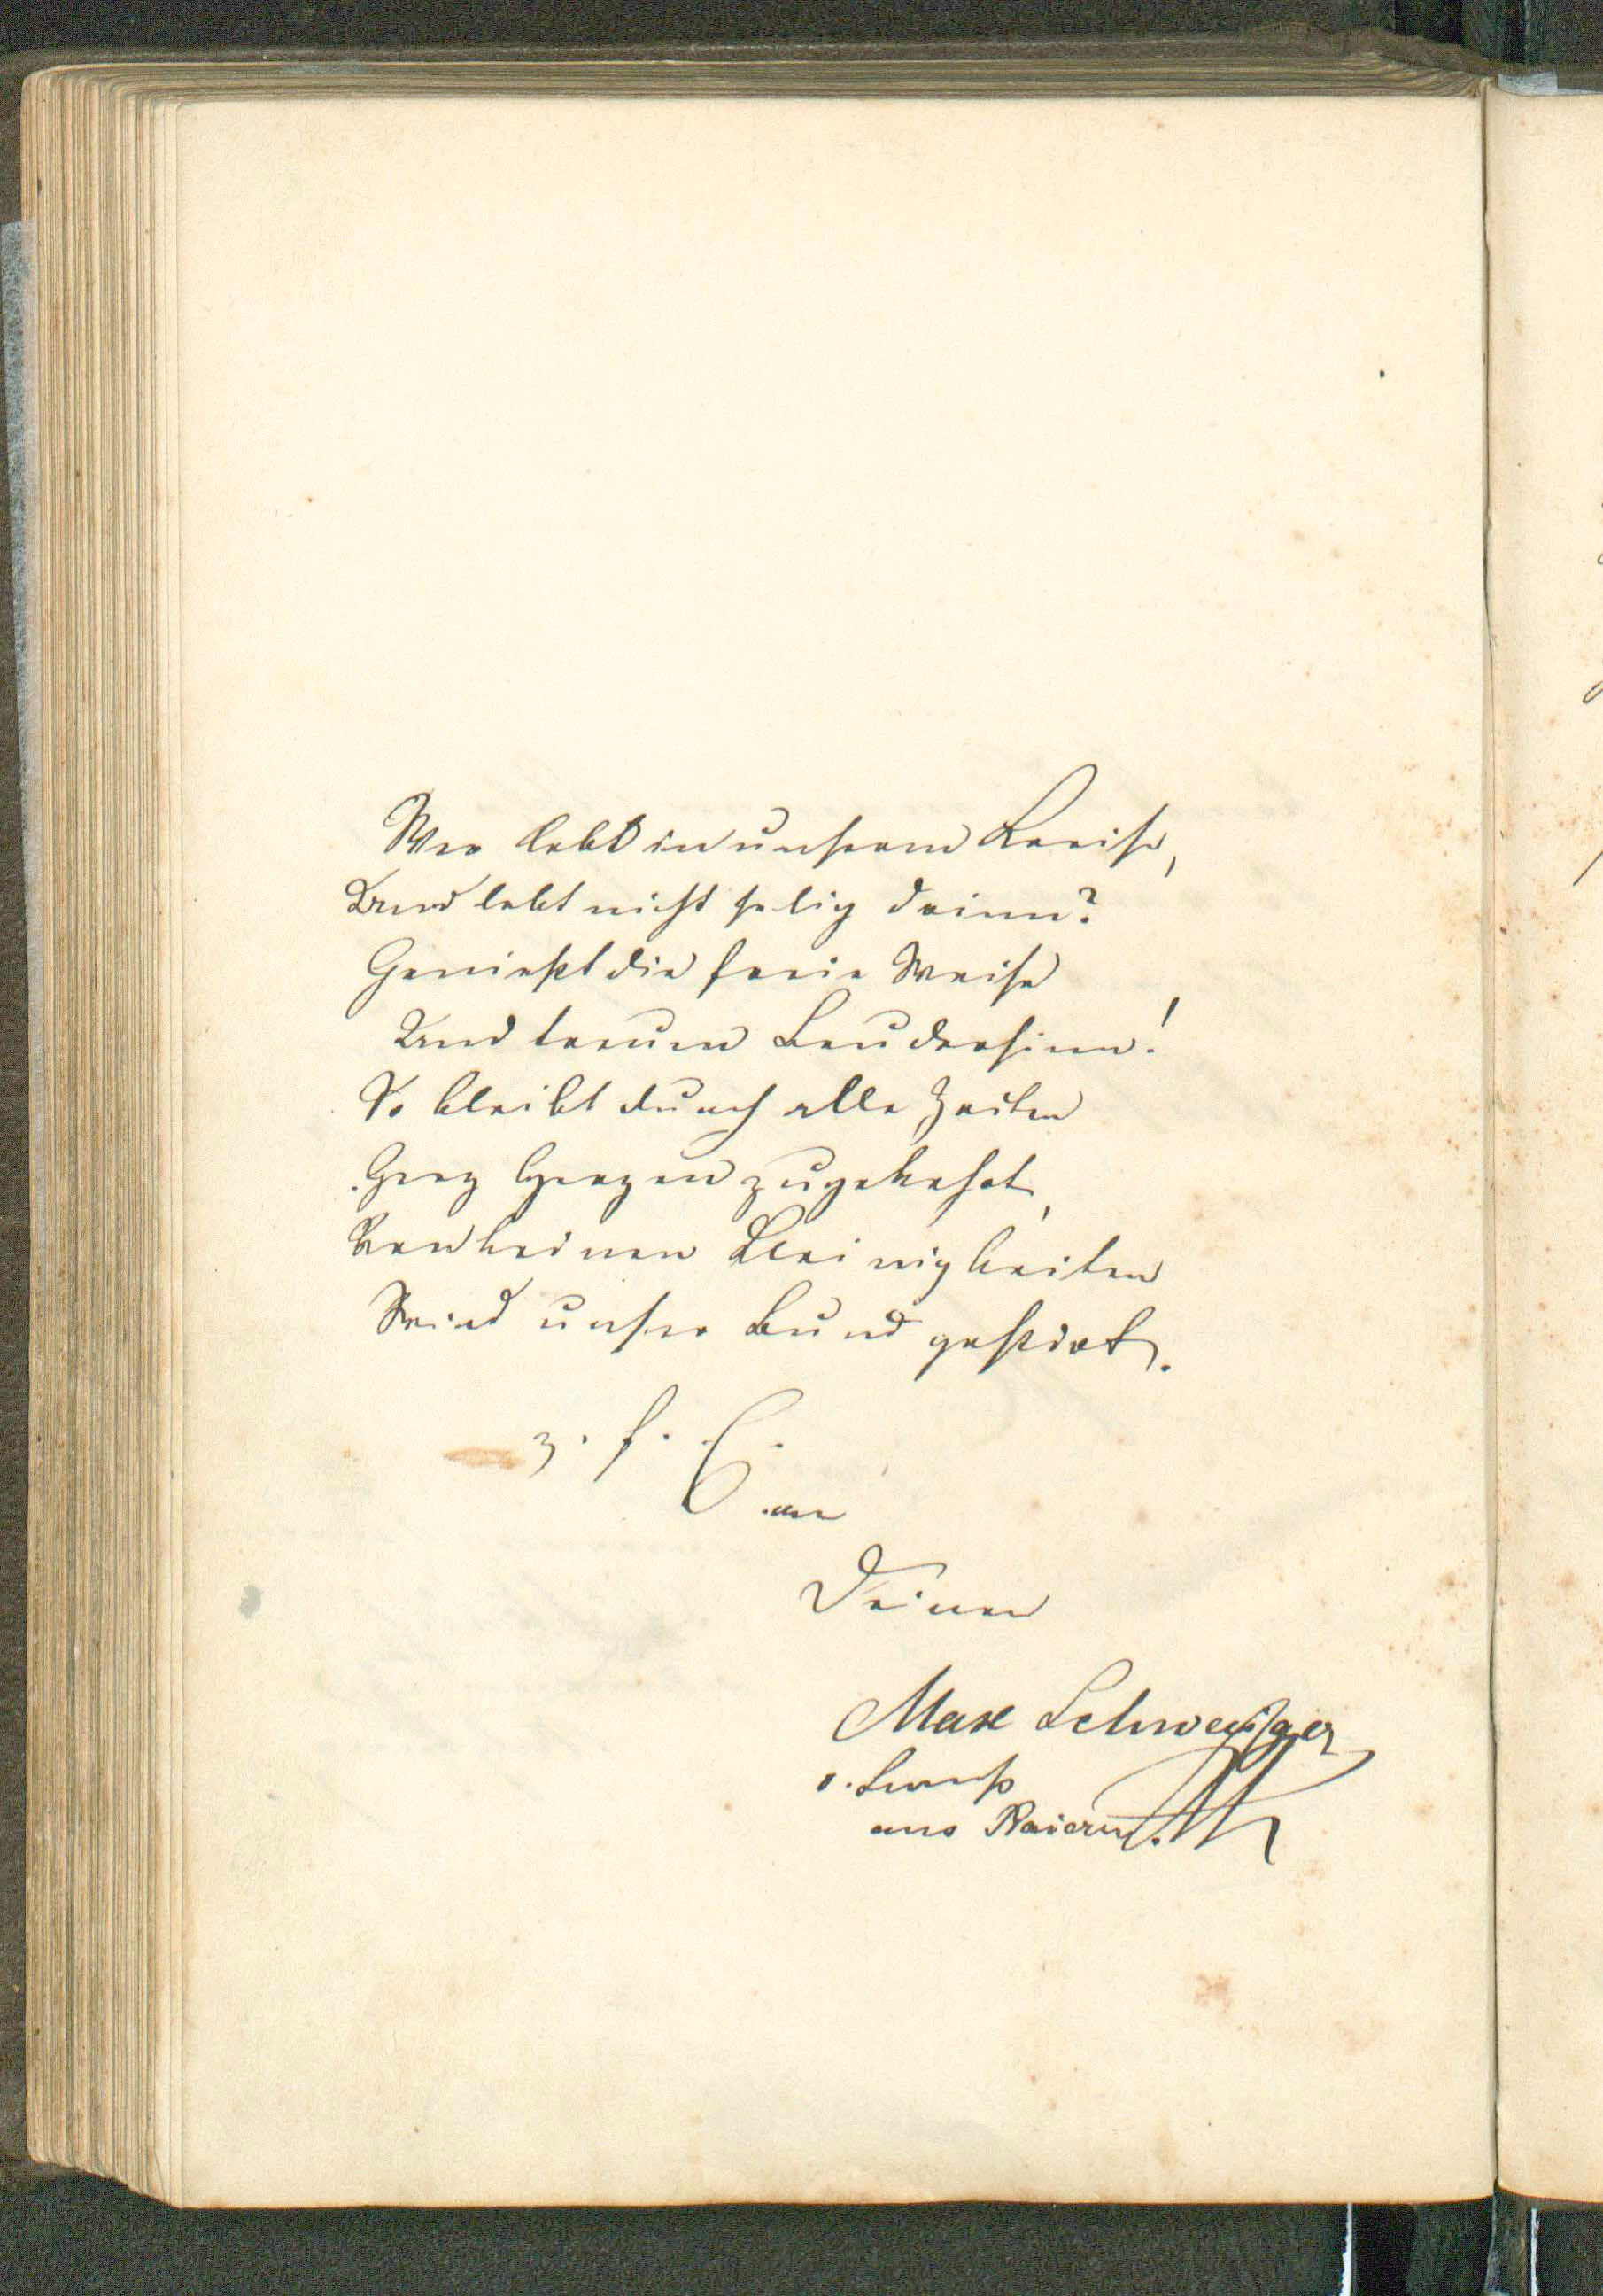 Wer lebt in unserem Kreise,
Und lebt nicht selig drinn?
Genießt die freie Weise
Und treuen Brudersinn!
So bleibt durch alle Zeiten
Herz Herzen zugekehrt,
Von keinen Kleinigkeiten
Wird unser Bund gestört.
z. f. E. an
Deinen
Max Schweiger
aus Baiern.